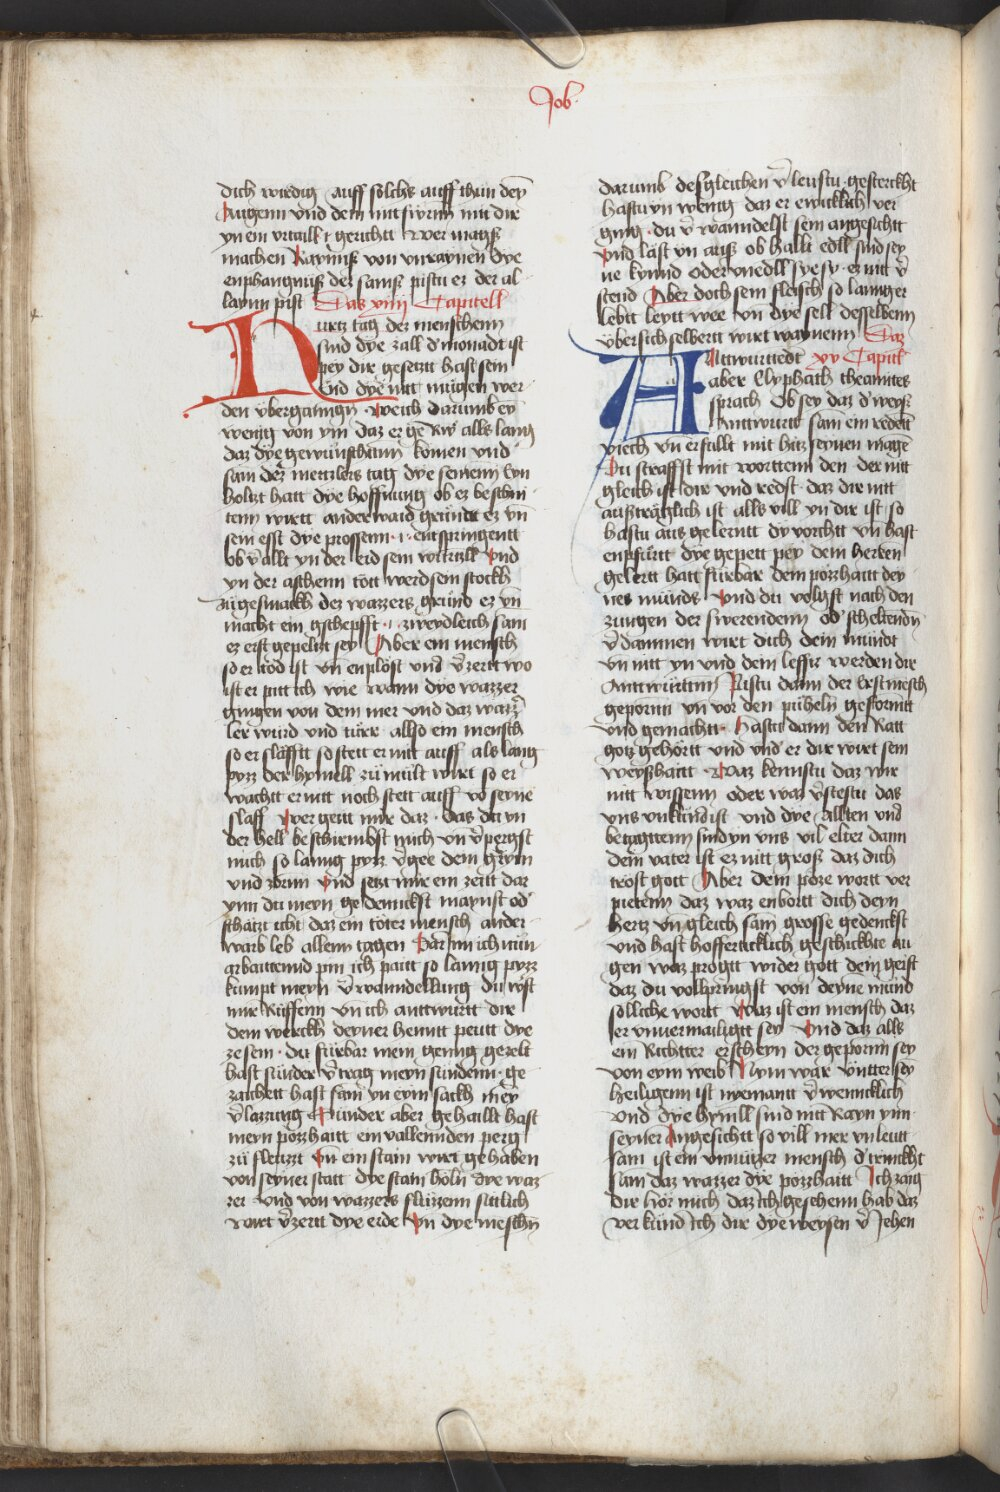 Job
dich wirdig auff solchs auff thun dey̅
Augenn vnd dem mit fürnn mit dir
yn ein vrtaill · gerichtt Wer mags
machen Raynnß von vnraynen dye
enphangnuß der sams pistu ez der al
laynn pist Das xiiij Capitell
Kurtz tag der menschenn
sind dye zall d' monadt ist
pey dir gesetzt hast sein
End dye nitt mügen wer
den vberganngn Weich darumb ey̅
wenig von ym daz er ge Rw alls lang
daz dye gewunschtenn komen vnd
sam der mertzlers tag dye senenn Eyn
holtzt hatt dye hoffnung ob ez beschni
tenn wirtt anderwaid gründt ez vn̅
sein esst dye prossenn · i · entspringentt
ob v̓allt yn der erd sein wurtzll vnd
yn der aschenn tott werd sein stockh
zu gesmackh dez wazzers gründ ez vn̅
macht ein gschepfft · i · zweydleich sam
ez erst gepeltzt sey Aber ein mensch
so er tod ist vn̅ enplöst vnd v̓zertt wo
ist er pitt ich wie wann dye wazzer
gingen von dem mer vnd daz wazz̓
ler wurd vnd türr allso ein mensch
so er släfftt so stett er nitt auff als lang
pyzz der hymell zu mült wirt so er
wachtt er nitt noch stett auff vo seyne
slaff Wer geitt mir daz · das du yn
der hell beschirmbst mich vn̅ v̓pergst
mich so lanng pyzz v̓gee dein grym
vnd zornn vnd setzt mir ein zeitt dar
ynn du meyn gedennckst maynst od'
schätzt icht daz ein töter mensch ander
warb leb allenn tagen Dar inn ich nün
arbaittennd pin ich paitt so lanng pyzz
kumpt meyn v̓wanndellung du wirst
mir Rüffenn vn̅ ich anttwurtt dir
dem werckh deyner henntt peutt dye
zesem · du fürbar mein genng gezelt
hast sunder v̓trag meyn sündenn · ge
zaichett hast sam yn eym sackh mey̅
v̓lazzung Sunder aber gehaillt hast
meyn pozzhaitt ein vallennden perg
zü fleuzzt vn̅ ein stain wirt gehaben
von seyner statt dye stain höln dye waz
zer vnd von wazzers flüzzenn sittlich
wirt v̓zertt dye erde Vn dye mesch̅n
darumb desgleichen v̓leustu · gesterckht
hastu yn wenig daz er ewicklich ver
ging · du v̓wanndelst sein angesichtt
vnd läst yn auß ob halltt edll sind sey
ne kynnd oder vnedll sye sy · ez nitt v̓
stend Aber doch sein fleisch so lannger
lebtt leytt wee vn̅ dye sell desselbenn
vber sich selbertt wirt waynenn Daz
Anttwurttedt xv Capitl
aber Elyphath themnites
sprach Ob sey daz d' weyß
Anttwürtt sam ein redett
viech vn̅ erfullt mit hitz seynen magē
Du straffst mit worttenn den · der nitt
gleich ist dir vnd redst · daz dir nitt
außträglich ist alls vill yn dir ist so
hastu aus gelerntt dy vorchtt vn̅ hast
enpfürtt dye gepett pey dem herren
gelertt hatt fürbar dein pozzhaitt dey
nes münds vnd du volgst nach den
zungen der swerendenn od' scheltendn̅
v̓damnen wirt dich dein mündt
vn̅ nitt yn vnd dein leffzs werden dir
Anttwürttnn Pistu dann der Erst mesch
geporn̅n vn̅ vor den püheln̅ geformtt
vnd gemachtt · hastu dann den Ratt
gotz gehörtt vnd vnd' er dir wirt sein
weyßhaitt Waz kennstu daz wir
nitt wissenn oder waz v̓stestu das
vns vnkundist vnd dye allten vnd
betagttenn sind yn vns vil elter dann
dein vater ist ez nitt groß daz dich
tröst gott Aber dein poze wortt ver
pietenn daz waz enbörtt dich deyn
hertz vn̅ gleich sam grosse gedenckst
vnd hast hoffertticklich geschickhte au
gen waz progtt wider gott dein geist
daz du vollpringst von deyne mund
solliche wortt Waz ist ein mensch daz
er vnuermailigtt sey Vnd daz alls
ein Richtter erscheyn der gepornn sey
von eym weib Nym war vntter sey̅
heiligenn ist nyemantt v̓wenncklich
vnd dye hymll sind nitt Rayn ynn
seyner Angesichtt so vill mer vnleutt
sam ist ein vnnützer mensch d' trinckht
sam daz wazzer dye pozzhaitt Ich zaig
dir hör mich daz ich gesehenn hab daz
verkünd ich dir dye weysen v̓Jehen